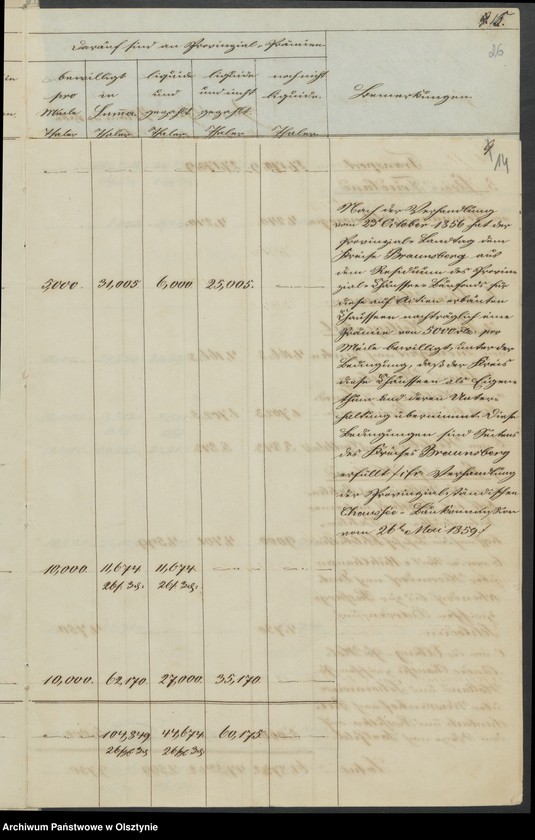 26
Darauf sind an Provinzial-Prämien
bewilligt pro Meile Thaler
in Summa Thaler
liquide und gezahlt Thaler
liquide und nicht gezahlt Thaler
noch nicht liquide Thaler
Bemerkungen
14
Nach der Verhandlung
vom 23t October 1856 hat der
Provinzial-Landtag dem
Kreise Braunsberg aus
dem Residuum des Provin-
zial-Chaussee-Baufonds für
diese auf Actien erbauten
Chausseen nachträglich eine
Prämie von 5000 rtl. pro
Meile bewilligt, unter der
Bedingung, daß der Kreis
diese Chausseen als Eigen-
thum und deren Unter-
haltung übernimmt. Diese
Bedingungen sind Seitens
des Kreises Braunsberg
erfüllt /: ctr. Verhandlung
der Provinzialständischen
Chaussee-Baukommission
vom 26t Mai 1859 :/
5,000. 31,005 6,000 25,005.
10,000. 11,674 11,674
26f. 3d. 26f. 3d.
10,000. 62,170 27,000. 35,170
104,849 44,674 60,175
26f. 3d. 26f. 3d.
Archiwum Państwowe w Olsztynie